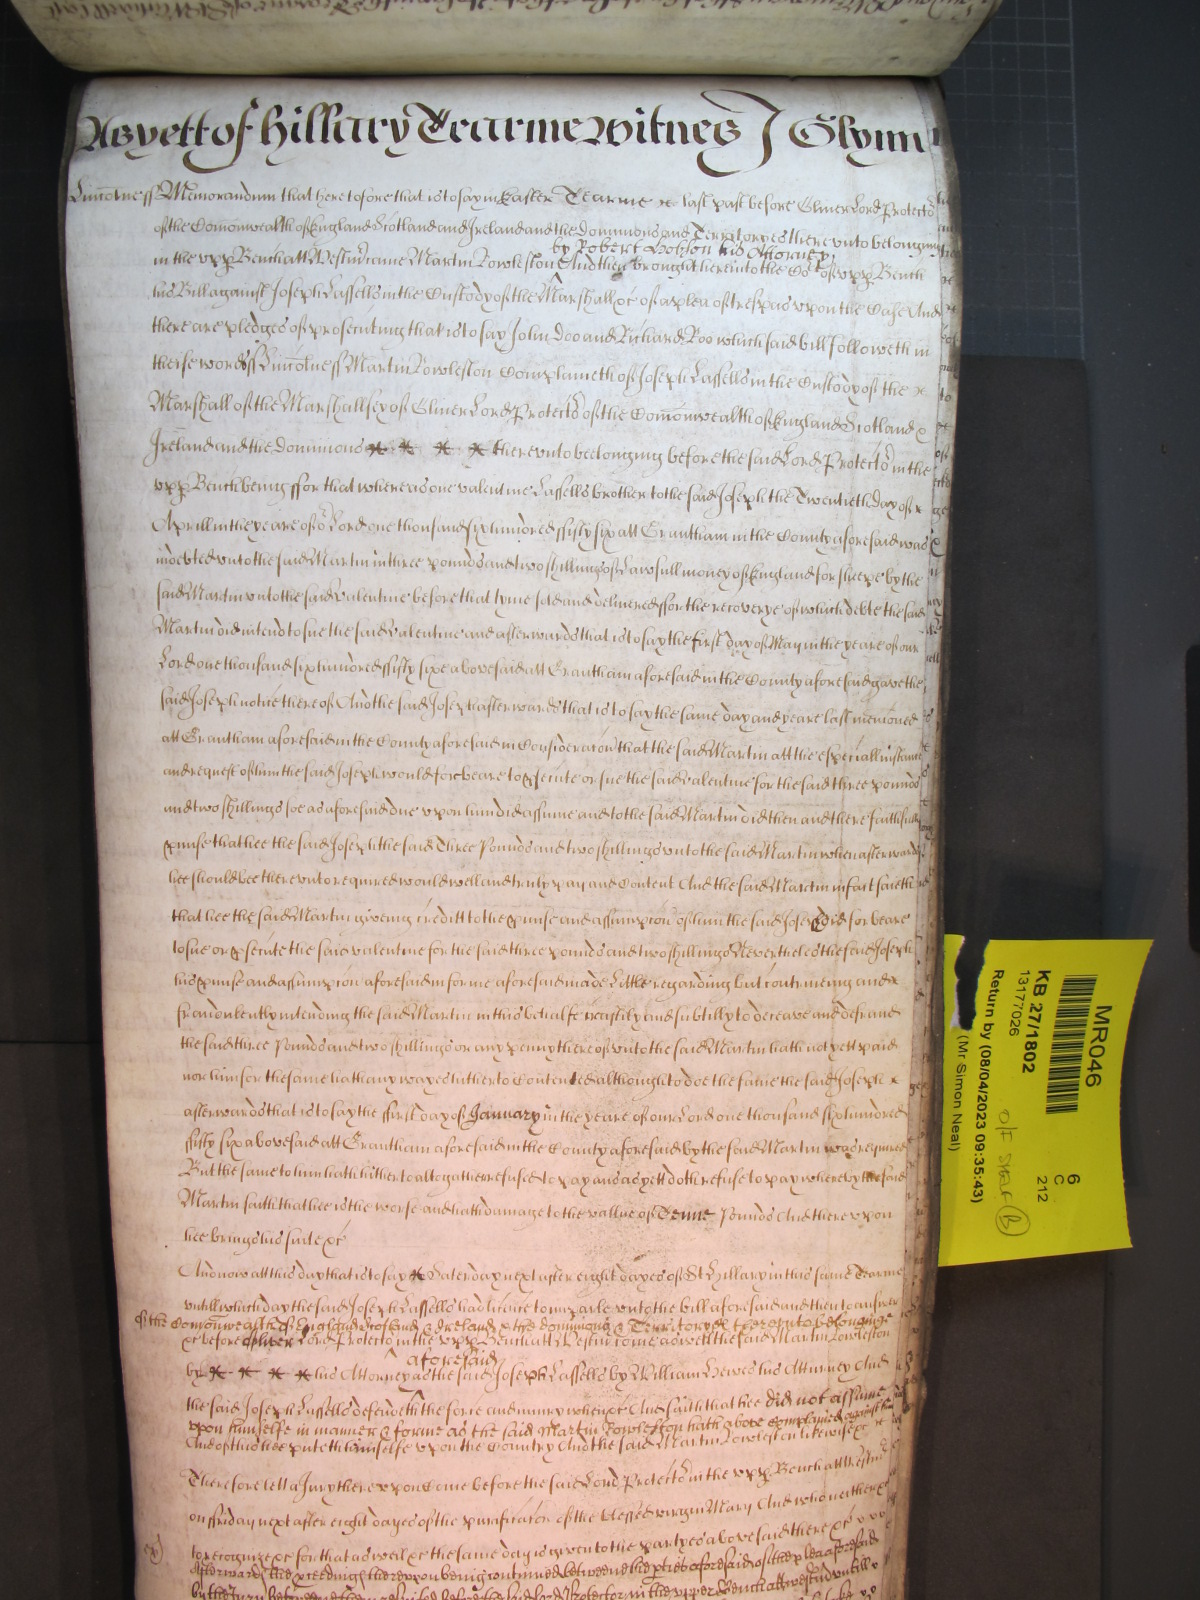 As yett of Hillary Tearme Witnes J Glynn
Lincolness Memorandum that heretofore that is to say in Easter Tearme last past before Oliver Lord Protector
of the Comonwealth of England Scotland and Ireland and the dominions and Territoryes therevnto belonging
by Robert Hobson his Attorney
in the vpp Bench att Westmr came Martin Rowleston And then brought here into the Cort of vpp Bench
his Bill against Joseph Lassells in the Custody of the Marshall &c of a plea of trespas vpon the Case And
there are pledges of prosecuting that is to say John Doo and Richard Roo which said bill followeth in
these words ss Lincolness Martin Rowleston Complaineth of Joseph Lassells in the Custody of the
Marshall of the Marshallsey of Oliver Lord Protector of the Comonwealth of England Scotland
Ireland and the dominions therevnto beelonging before the said Lord Protector in the
vpp Bench being ffor that whereas one valentine Lassells brother to the said Joseph the Twentieth day of
Aprill in the yeare of or Lord one thousand six hundred fifty six att Grantham in the County aforesaid was
indebted vnto the said Martin in three pounds and two shillings of Lawfull money of England for sheepe by the
said Martin vnto the said valentine before that tyme sold and delivered ffor the recoverye of which debte the said
Martin did intend to sue the said valentine and afterwards that is to say the first day of May in the yeare of our
Lord one thousand six hundred fifty sixe abovesaid att Grantham aforesaid in the County aforesaid gave the
said Joseph notice thereof And the said Joseph afterwards that is to say the same day and yeare last mentioned
att Grantham aforesaid in the County aforesaid in Consideracon that the said Martin att the especiall instance
and request of him the said Joseph would forbeare to psecute or sue the said valentine for the said three pounds
and two shillings soe as aforesaid due vpon him did assume and to the said Martin did then and there faithfully
pmise that hee the said Joseph the said Three Pounds and two shillings vnto the said Martin when afterwards
hee should bee therevnto required would well and truly pay and Content And the said Martin in fact saieth
that hee the said Martin giveing creditt to the pmise and assumpcon of him the said Joseph did forbeare
to sue or psecute the said valentine for the said three pounds and two shillings Nevertheles the said Joseph
his pmise and assumpcon aforesaid in forme aforesaid made Little regarding but contriveing and
fraudulently intending the said Martin in this behalfe craftily and subtilly to deceave and defraud
the said three Pounds and two shillings or any penny thereof vnto the said Martin hath not yett paid
nor him for the same hath any wayes hitherto Contented although to doe the same the said Joseph
afterwards that is to say the ffirst day of January in the yeare of our Lord one thousand six hundred
fifty six abovesaid att Grantham aforesaid in the County aforesaid by the said Martin was required
But the same to him hath hitherto altogather refused to pay and as yett doth refuse to pay whereby the said
Martin saith that hee is the worse and hath damage to the vallue of Tenne Pounds And therevpon
hee brings his suite &c
And now att this day that is to say Saterday next after eight dayes of St Hillary in this same Tearme
vntill which day the said Joseph Lassells had licence to imparle vnto the bill aforesaid and then to answer
of the Comonwealth of England Scotland & Ireland & the dominions & Territoryes therevnto belonging
&c before Oliver Lord Protector in the vpp Bench att Westm come aswell the said Martin Rowleston
aforesaid
by his Attorney as the said Joseph Lassells by William Lewes his Attorney And
the said Joseph Lassells defendeth the force and iniury when &c And saith that hee did not assume
vpon himselfe in manner & forme as the said Martin Rowleston hath above complained against him
And of this hee puteth himselfe vpon the Country And the said Martin Rowleston likewise &c
Therefore lett a Jury therevpon Come before the said Lord Protector in the vpp Bench att Westmr
on ffriday next after eight dayes of the purificacon of the blessed virgin Mary And who neither &c
to recognize &c for that aswell &c the same day is given to the partyes abovesaid there &c
Afterward the pceedings therevpon being continued betweene the pties aforesaid of the plea aforesaid
Protector in the vpper Bench att westmr vntill
MR046
KB 27/1802
13177026
6
C
212
Return by (08/04/2023 09:35:43)
(Mr Simon Neal)
O/F
B